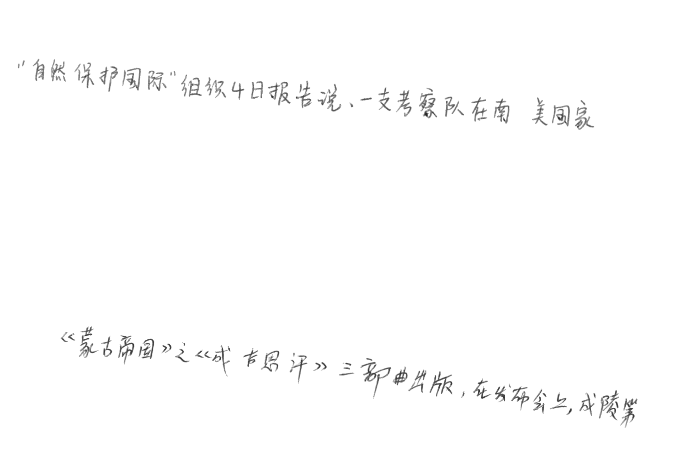 "自然保护国际"组织4日报告说、一支考察队在南美国家
《蒙古帝国》之《成吉思汗》三部曲出版,在发布会上,成陵第